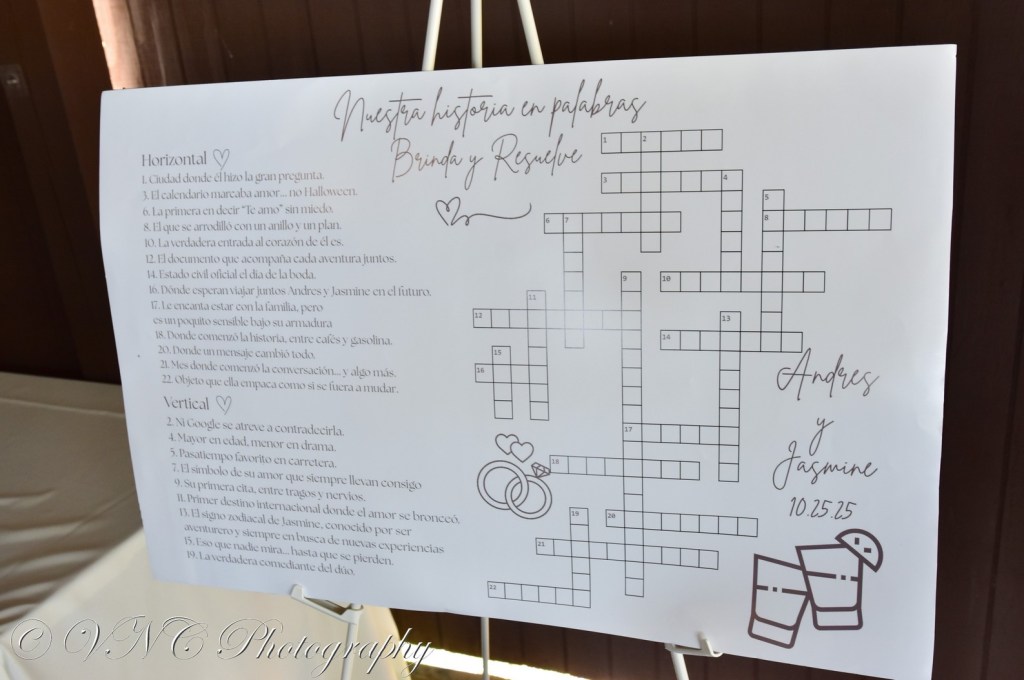 Nuestra historia en palabras
Brinda y Resuelve
Horizontal
1. Ciudad donde él hizo la gran pregunta.
3. El calendario marcaba amor... no Halloween.
6. La primera en decir “Te amo” sin miedo.
8. El que se arrodilló con un anillo y un plan.
10. La verdadera entrada al corazón de él es.
12. El documento que acompaña cada aventura juntos.
14. Estado civil oficial el día de la boda.
16. Dónde esperan viajar juntos Andres y Jasmine en el futuro.
17. Le encanta estar con la familia, pero
es un poquito sensible bajo su armadura
18. Donde comenzó la historia, entre cafés y gasolina.
20. Donde un mensaje cambió todo.
21. Mes donde comenzó la conversación... y algo más.
22. Objeto que ella empaca como si se fuera a mudar.
Vertical
2. Ni Google se atreve a contradecirla.
4. Mayor en edad, menor en drama.
5. Pasatiempo favorito en carretera.
7. El símbolo de su amor que siempre llevan consigo
9. Su primera cita, entre tragos y nervios.
11. Primer destino internacional donde el amor se bronceó.
13. El signo zodiacal de Jasmine, conocido por ser
aventurero y siempre en busca de nuevas experiencias
15. Eso que nadie mira... hasta que se pierden.
19. La verdadera comediante del dúo.
1 2
3 4
5
6 7 8
9 10
11
12 13
14
15
16
17
18
19 20
21
22
Andres
y
Jasmine
10.25.25
© VNC Photography